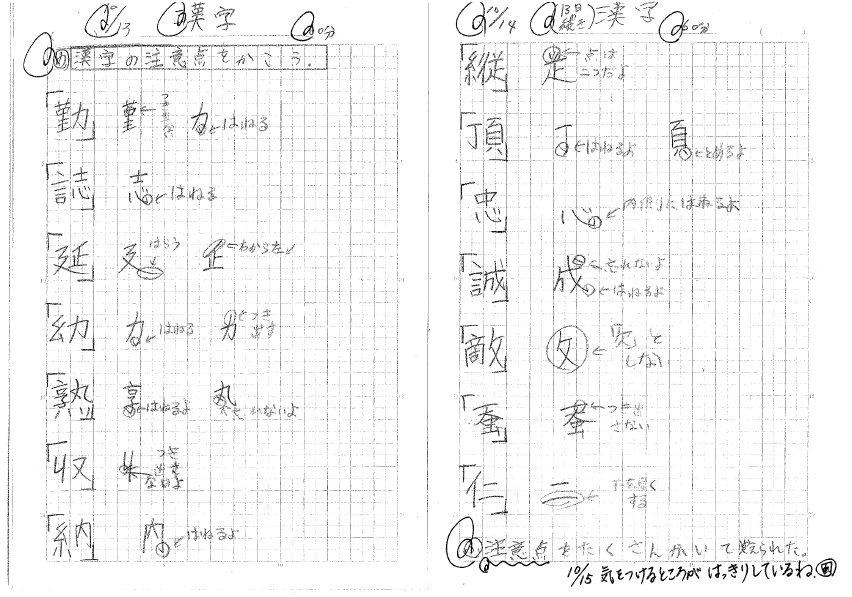 10/13 漢字 20分
め 漢字の注意点をかこう。
「勤」 つき出さない 力 はねる
「誌」 志 はねる
「延」 廴 はらう 右から左
「幼」 力 はねる つき出す
「熟」 享 はねるよ 丸 わすれないよ
「収」 つき出さないよ
「納」 内 はねるよ
10/14 13日続き 漢字 60分
「縦」 点は二つだよ
「頂」 丁 はねるよ 頁 とめるよ
「忠」 心 内側にはねるよ
「誠」 成 忘れないよ はねるよ
「敵」 攵 としない
「蚕」 つき出さない
「仁」 二 下を長くする
注意点をたくさんかいて覚えられた。
10/15 気をつけるところがはっきりしているね。